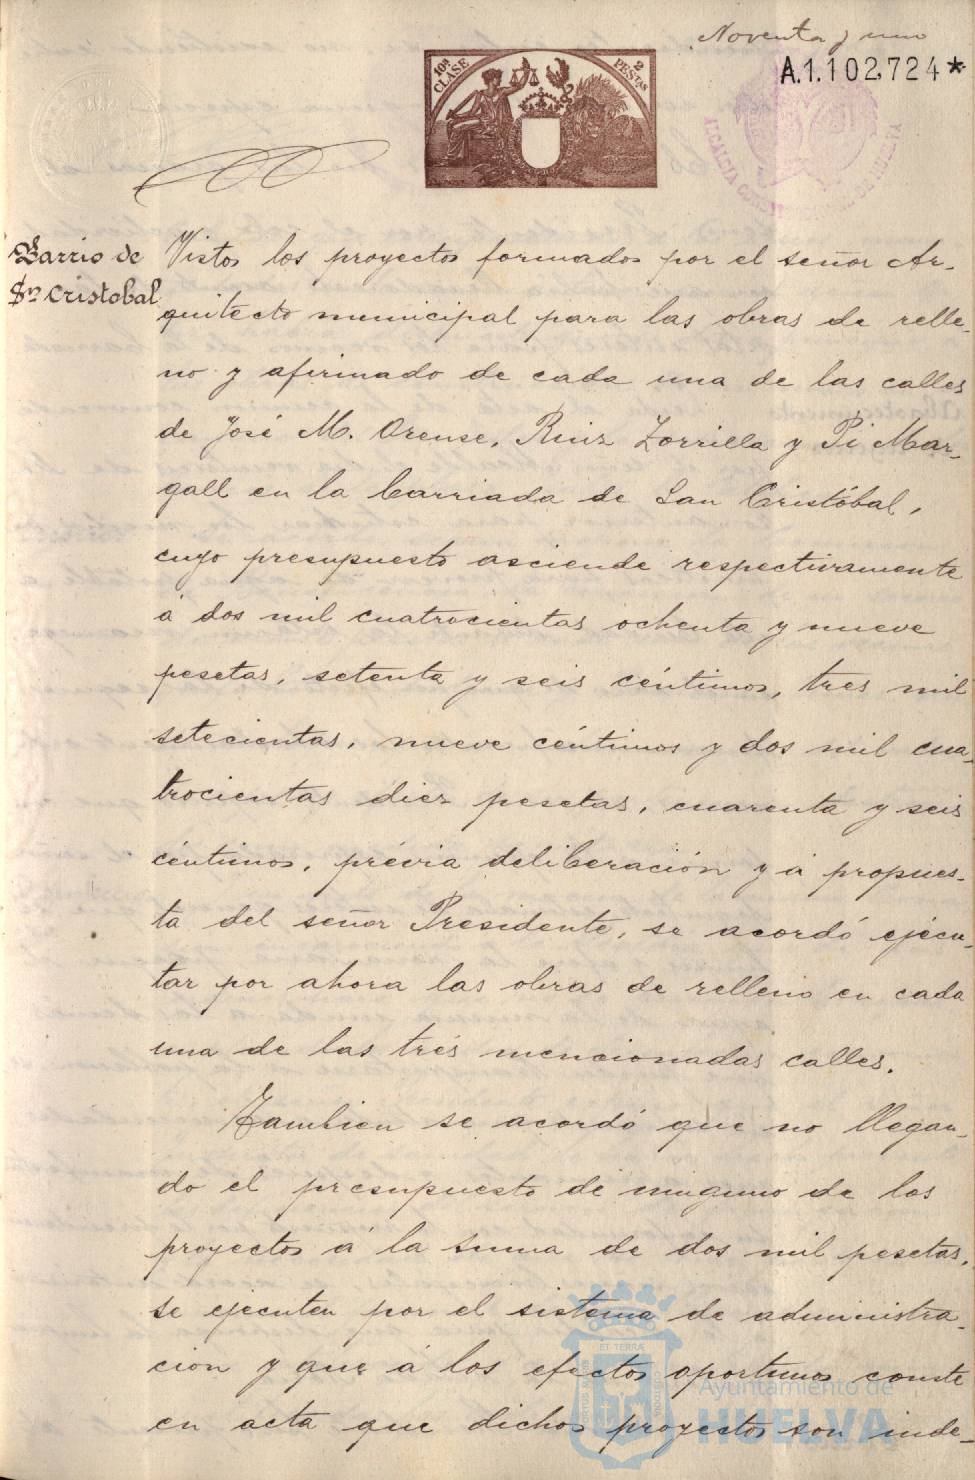 Noventa y uno
A.1.102,724*
10ª CLASE
2 PESETAS
ALCALDIA CONSTITUCIONAL DE HUELVA
Barrio de
Sn Cristobal
Vistos los proyectos formados por el señor Ar-
quitecto municipal para las obras de relle-
no y afirmado de cada una de las calles
de José M. Orense, Ruiz Zorrilla y Pi Mar-
gall en la barriada de San Cristóbal,
cuyo presupuesto asciende respectivamente
á dos mil cuatrocientas ochenta y nueve
pesetas, setenta y seis céntimos, tres mil
setecientas, nueve céntimos y dos mil cua-
trocientas diez pesetas, cuarenta y seis
céntimos, prévia deliberación y á propues-
ta del señor Presidente, se acordó ejecu-
tar por ahora las obras de relleno en cada
una de las trés mencionadas calles.
Tambien se acordó que no llegan-
do el presupuesto de ninguno de los
proyectos á la suma de dos mil pesetas,
se ejecuten por el sistema de administra-
cion y que á los efectos oportunos conste
en acta que dichos proyectos son inde-
ET-TERRA
Ayuntamiento de
HUELVA